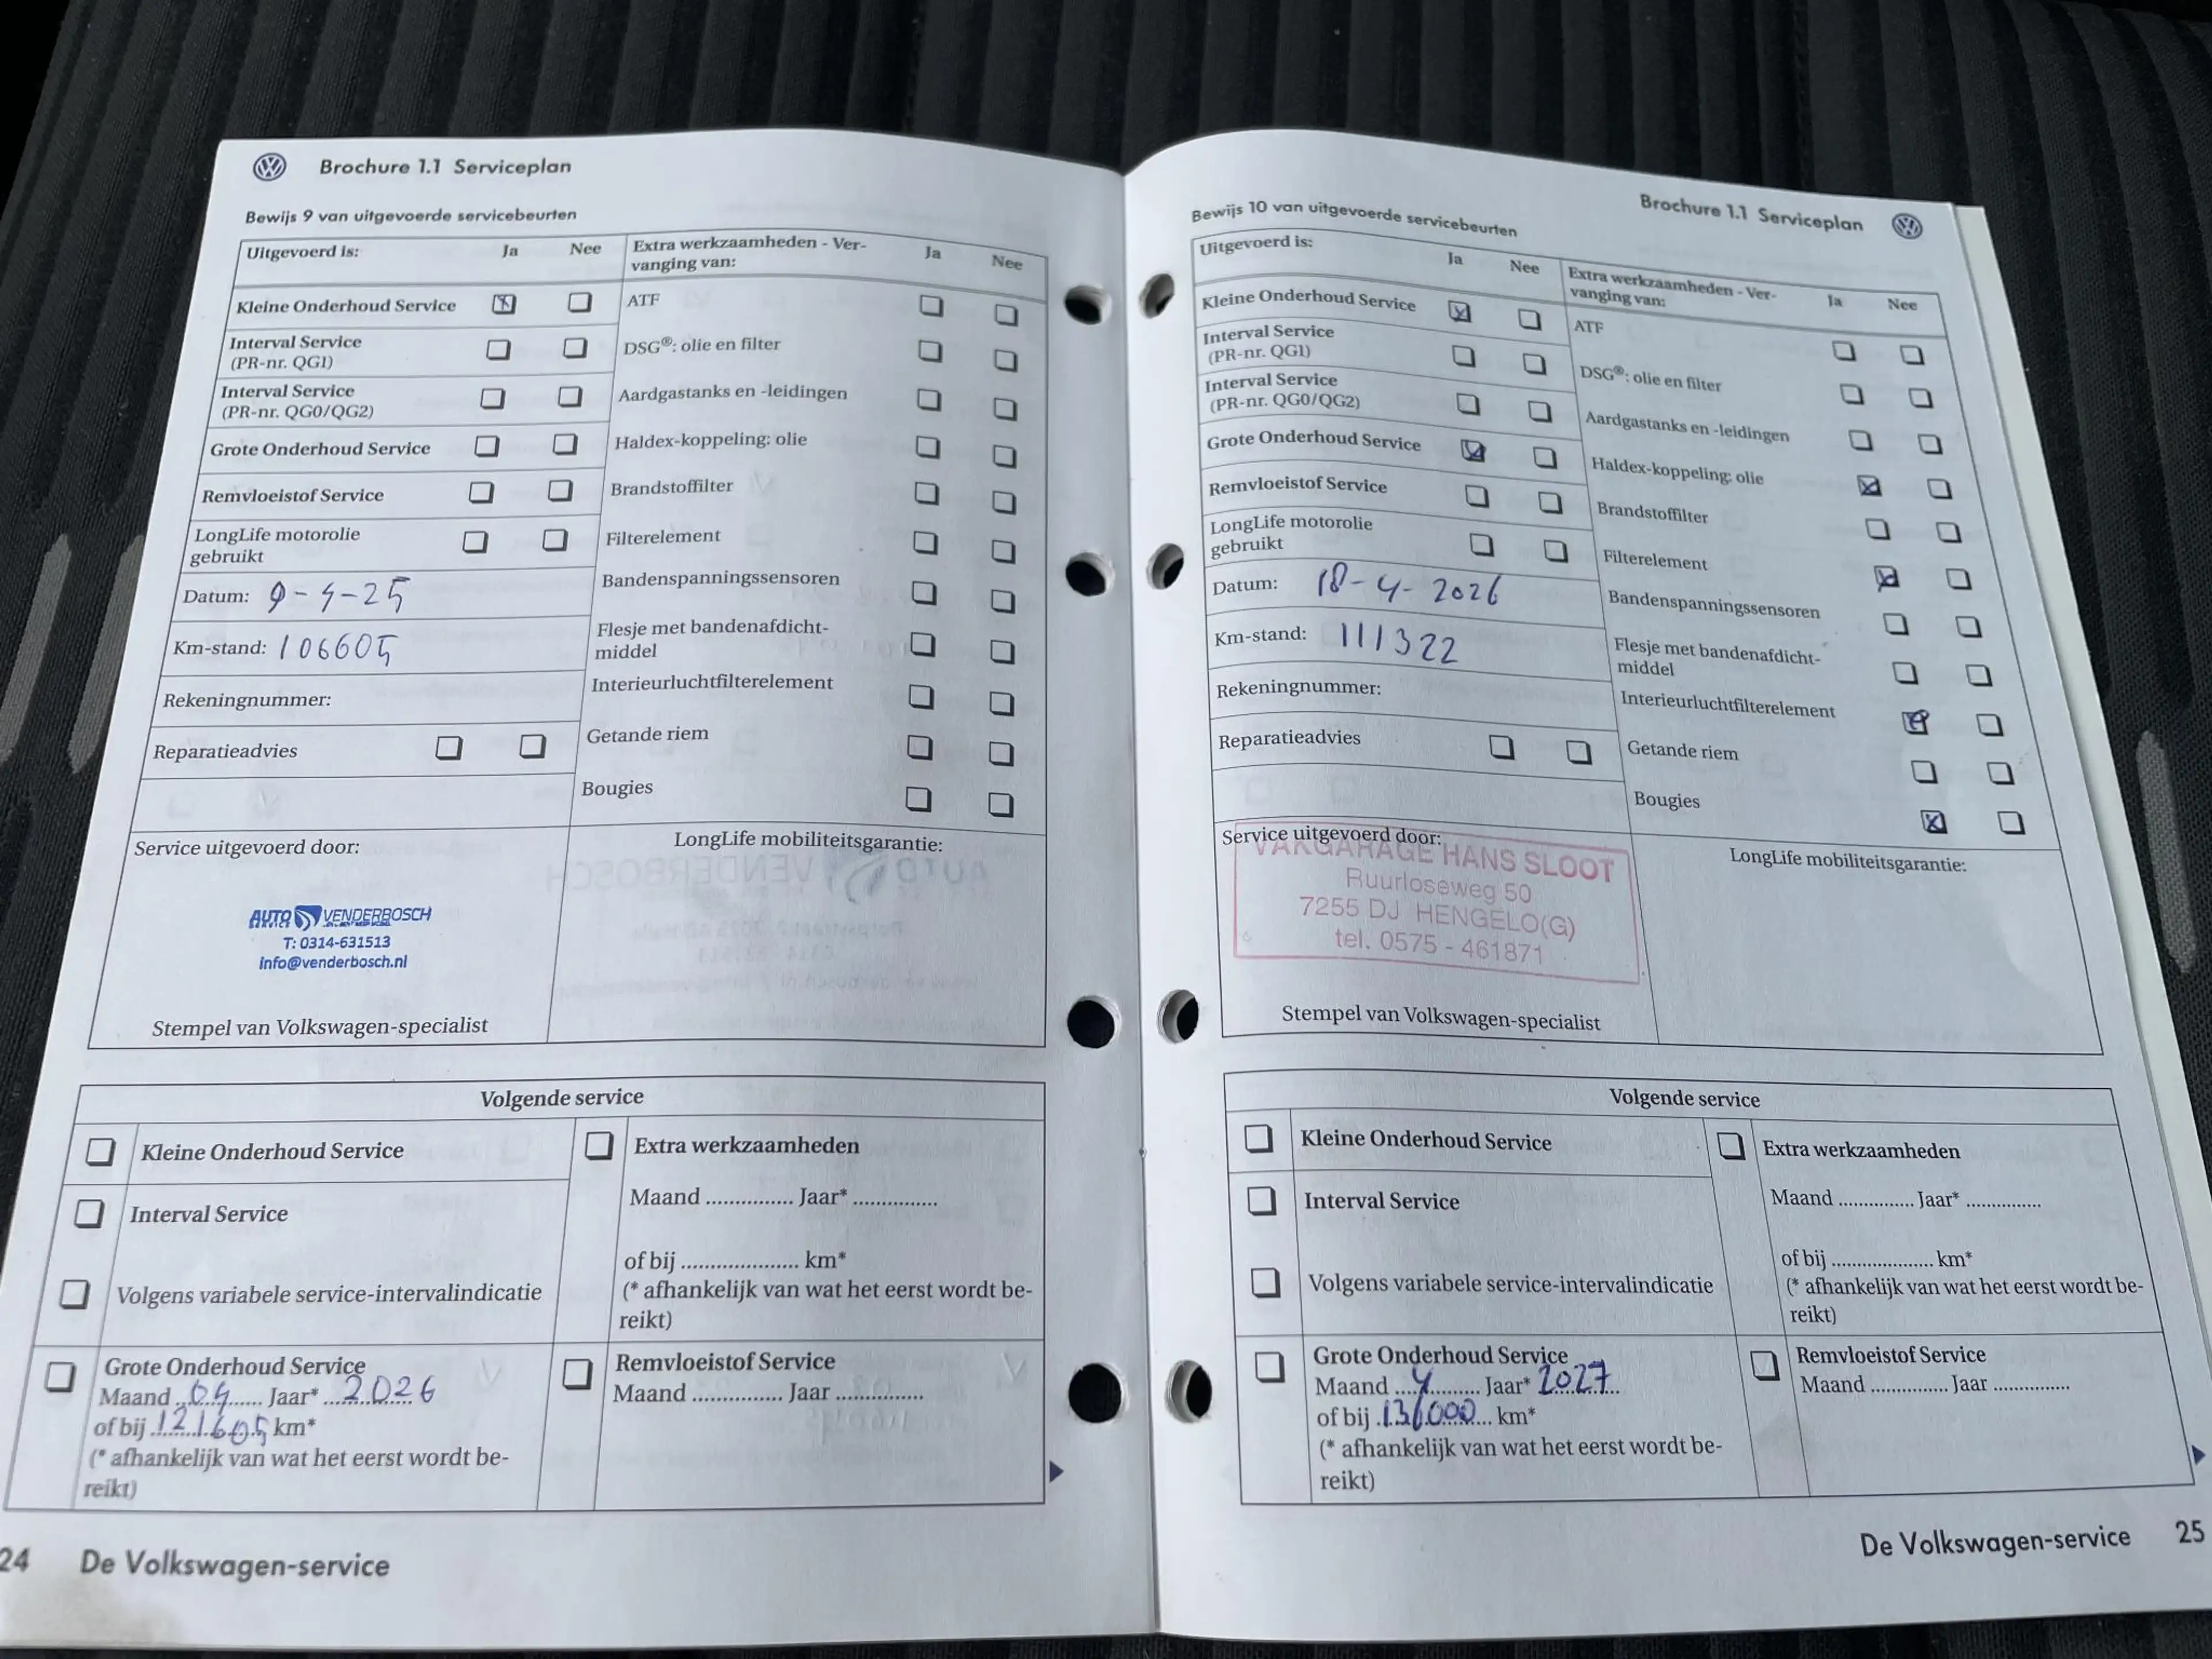 Brochure 1.1 Serviceplan
Bewijs 9 van uitgevoerde servicebeurten
Uitgevoerd is: Ja Nee
Kleine Onderhoud Service
Interval Service
(PR-nr. QG1)
Interval Service
(PR-nr. QG0/QG2)
Grote Onderhoud Service
Remvloeistof Service
LongLife motorolie
gebruikt
Datum: 9-4-25
Km-stand: 106605
Rekeningnummer:
Reparatieadvies
Extra werkzaamheden - Ver-
vanging van: Ja Nee
ATF
DSG®: olie en filter
Aardgastanks en -leidingen
Haldex-koppeling: olie
Brandstoffilter
Filterelement
Bandenspanningssensoren
Flesje met bandenafdicht-
middel
Interieurluchtfilterelement
Getande riem
Bougies
Service uitgevoerd door:
AUTO VENDERBOSCH
SERVICE
T: 0314-631513
info@venderbosch.nl
Stempel van Volkswagen-specialist
LongLife mobiliteitsgarantie:
Volgende service
Kleine Onderhoud Service
Interval Service
Volgens variabele service-intervalindicatie
Grote Onderhoud Service
Maand 04 Jaar* 2026
of bij 121605 km*
(* afhankelijk van wat het eerst wordt be-
reikt)
Extra werkzaamheden
Maand ............... Jaar* ...............
of bij ..................... km*
(* afhankelijk van wat het eerst wordt be-
reikt)
Remvloeistof Service
Maand ............... Jaar ...............
24 De Volkswagen-service
Brochure 1.1 Serviceplan
Bewijs 10 van uitgevoerde servicebeurten
Uitgevoerd is: Ja Nee
Kleine Onderhoud Service
Interval Service
(PR-nr. QG1)
Interval Service
(PR-nr. QG0/QG2)
Grote Onderhoud Service
Remvloeistof Service
LongLife motorolie
gebruikt
Datum: 18-4-2026
Km-stand: 111322
Rekeningnummer:
Reparatieadvies
Extra werkzaamheden - Ver-
vanging van: Ja Nee
ATF
DSG®: olie en filter
Aardgastanks en -leidingen
Haldex-koppeling: olie
Brandstoffilter
Filterelement
Bandenspanningssensoren
Flesje met bandenafdicht-
middel
Interieurluchtfilterelement
Getande riem
Bougies
Service uitgevoerd door:
VAKGARAGE HANS SLOOT
Ruurloseweg 50
7255 DJ HENGELO(G)
tel. 0575 - 461871
Stempel van Volkswagen-specialist
LongLife mobiliteitsgarantie:
Volgende service
Kleine Onderhoud Service
Interval Service
Volgens variabele service-intervalindicatie
Grote Onderhoud Service
Maand 4 Jaar* 2027
of bij 131000 km*
(* afhankelijk van wat het eerst wordt be-
reikt)
Extra werkzaamheden
Maand ............... Jaar* ...............
of bij ..................... km*
(* afhankelijk van wat het eerst wordt be-
reikt)
Remvloeistof Service
Maand ............... Jaar ...............
De Volkswagen-service 25